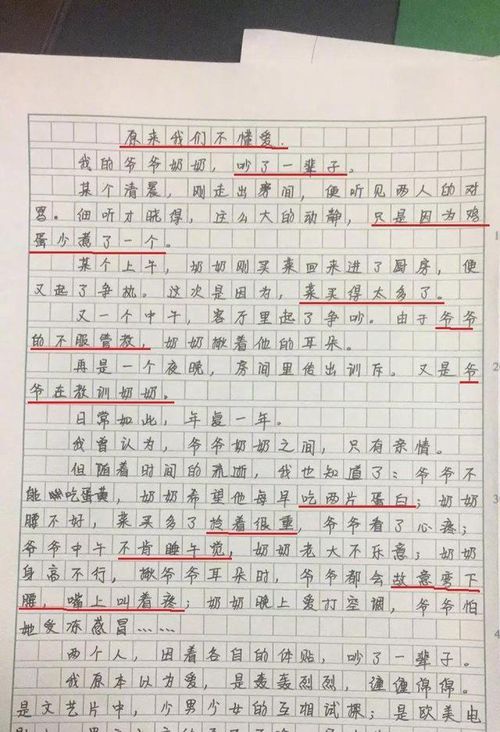 原来我们不懂爱.
我的爷爷奶奶，吵了一辈子。
某个清晨，刚走出房间，便听见两人的对
骂。细听才晓得，这么大的动静，只是因为鸡
蛋少煮了一个。
某个上午，奶奶刚买菜回来进了厨房，便
又起了争执。这次是因为，菜买得太多了。
又一个中午，客厅里起了争吵。由于爷爷
的不服管教，奶奶揪着他的耳朵。
再是一个夜晚，房间里传出训斥。又是爷
爷在教训奶奶。
日常如此，年复一年。
我曾认为，爷爷奶奶之间，只有亲情。
但随着时间的流逝，我也知道了：爷爷不
能吃蛋黄，奶奶希望他每早吃两片蛋白；奶奶
腰不好，菜买多了拎着很重，爷爷看了心疼；
爷爷中午不肯睡午觉，奶奶老大不乐意；奶奶
身高不行，揪爷爷耳朵时，爷爷都会故意弯下
腰，嘴上叫着疼；奶奶晚上爱打空调，爷爷怕
她受冻感冒……
两个人，因着各自的体贴，吵了一辈子。
我原本以为爱，是轰轰烈烈，缠缠绵绵。
是文艺片中，少男少女的互相试探；是欧美电
1
20
30
4